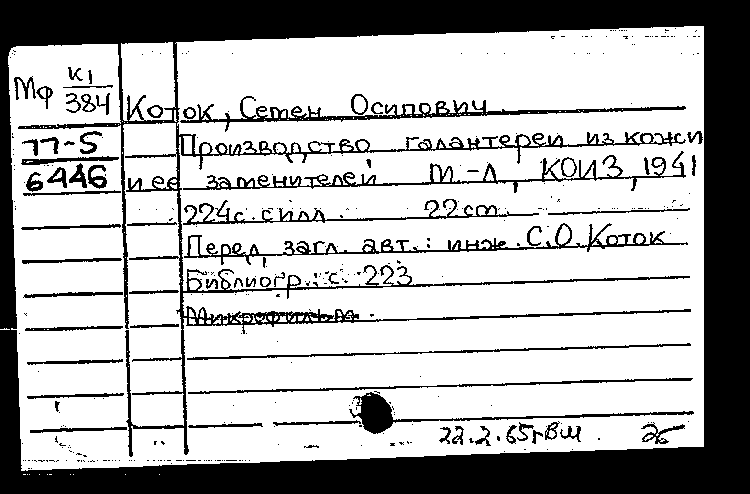 Мф К1/384
Коток, Семен Осипович
77-5 Производство галантереи из кожи
6446 и ее заменителей М.-Л, КОИЗ, 1941
224с. с илл. 22 см.
Перед загл. авт.: инж. С.О. Коток
Библиогр.: с. 223
Микрофильм.
22.2.65г ВМ. 26